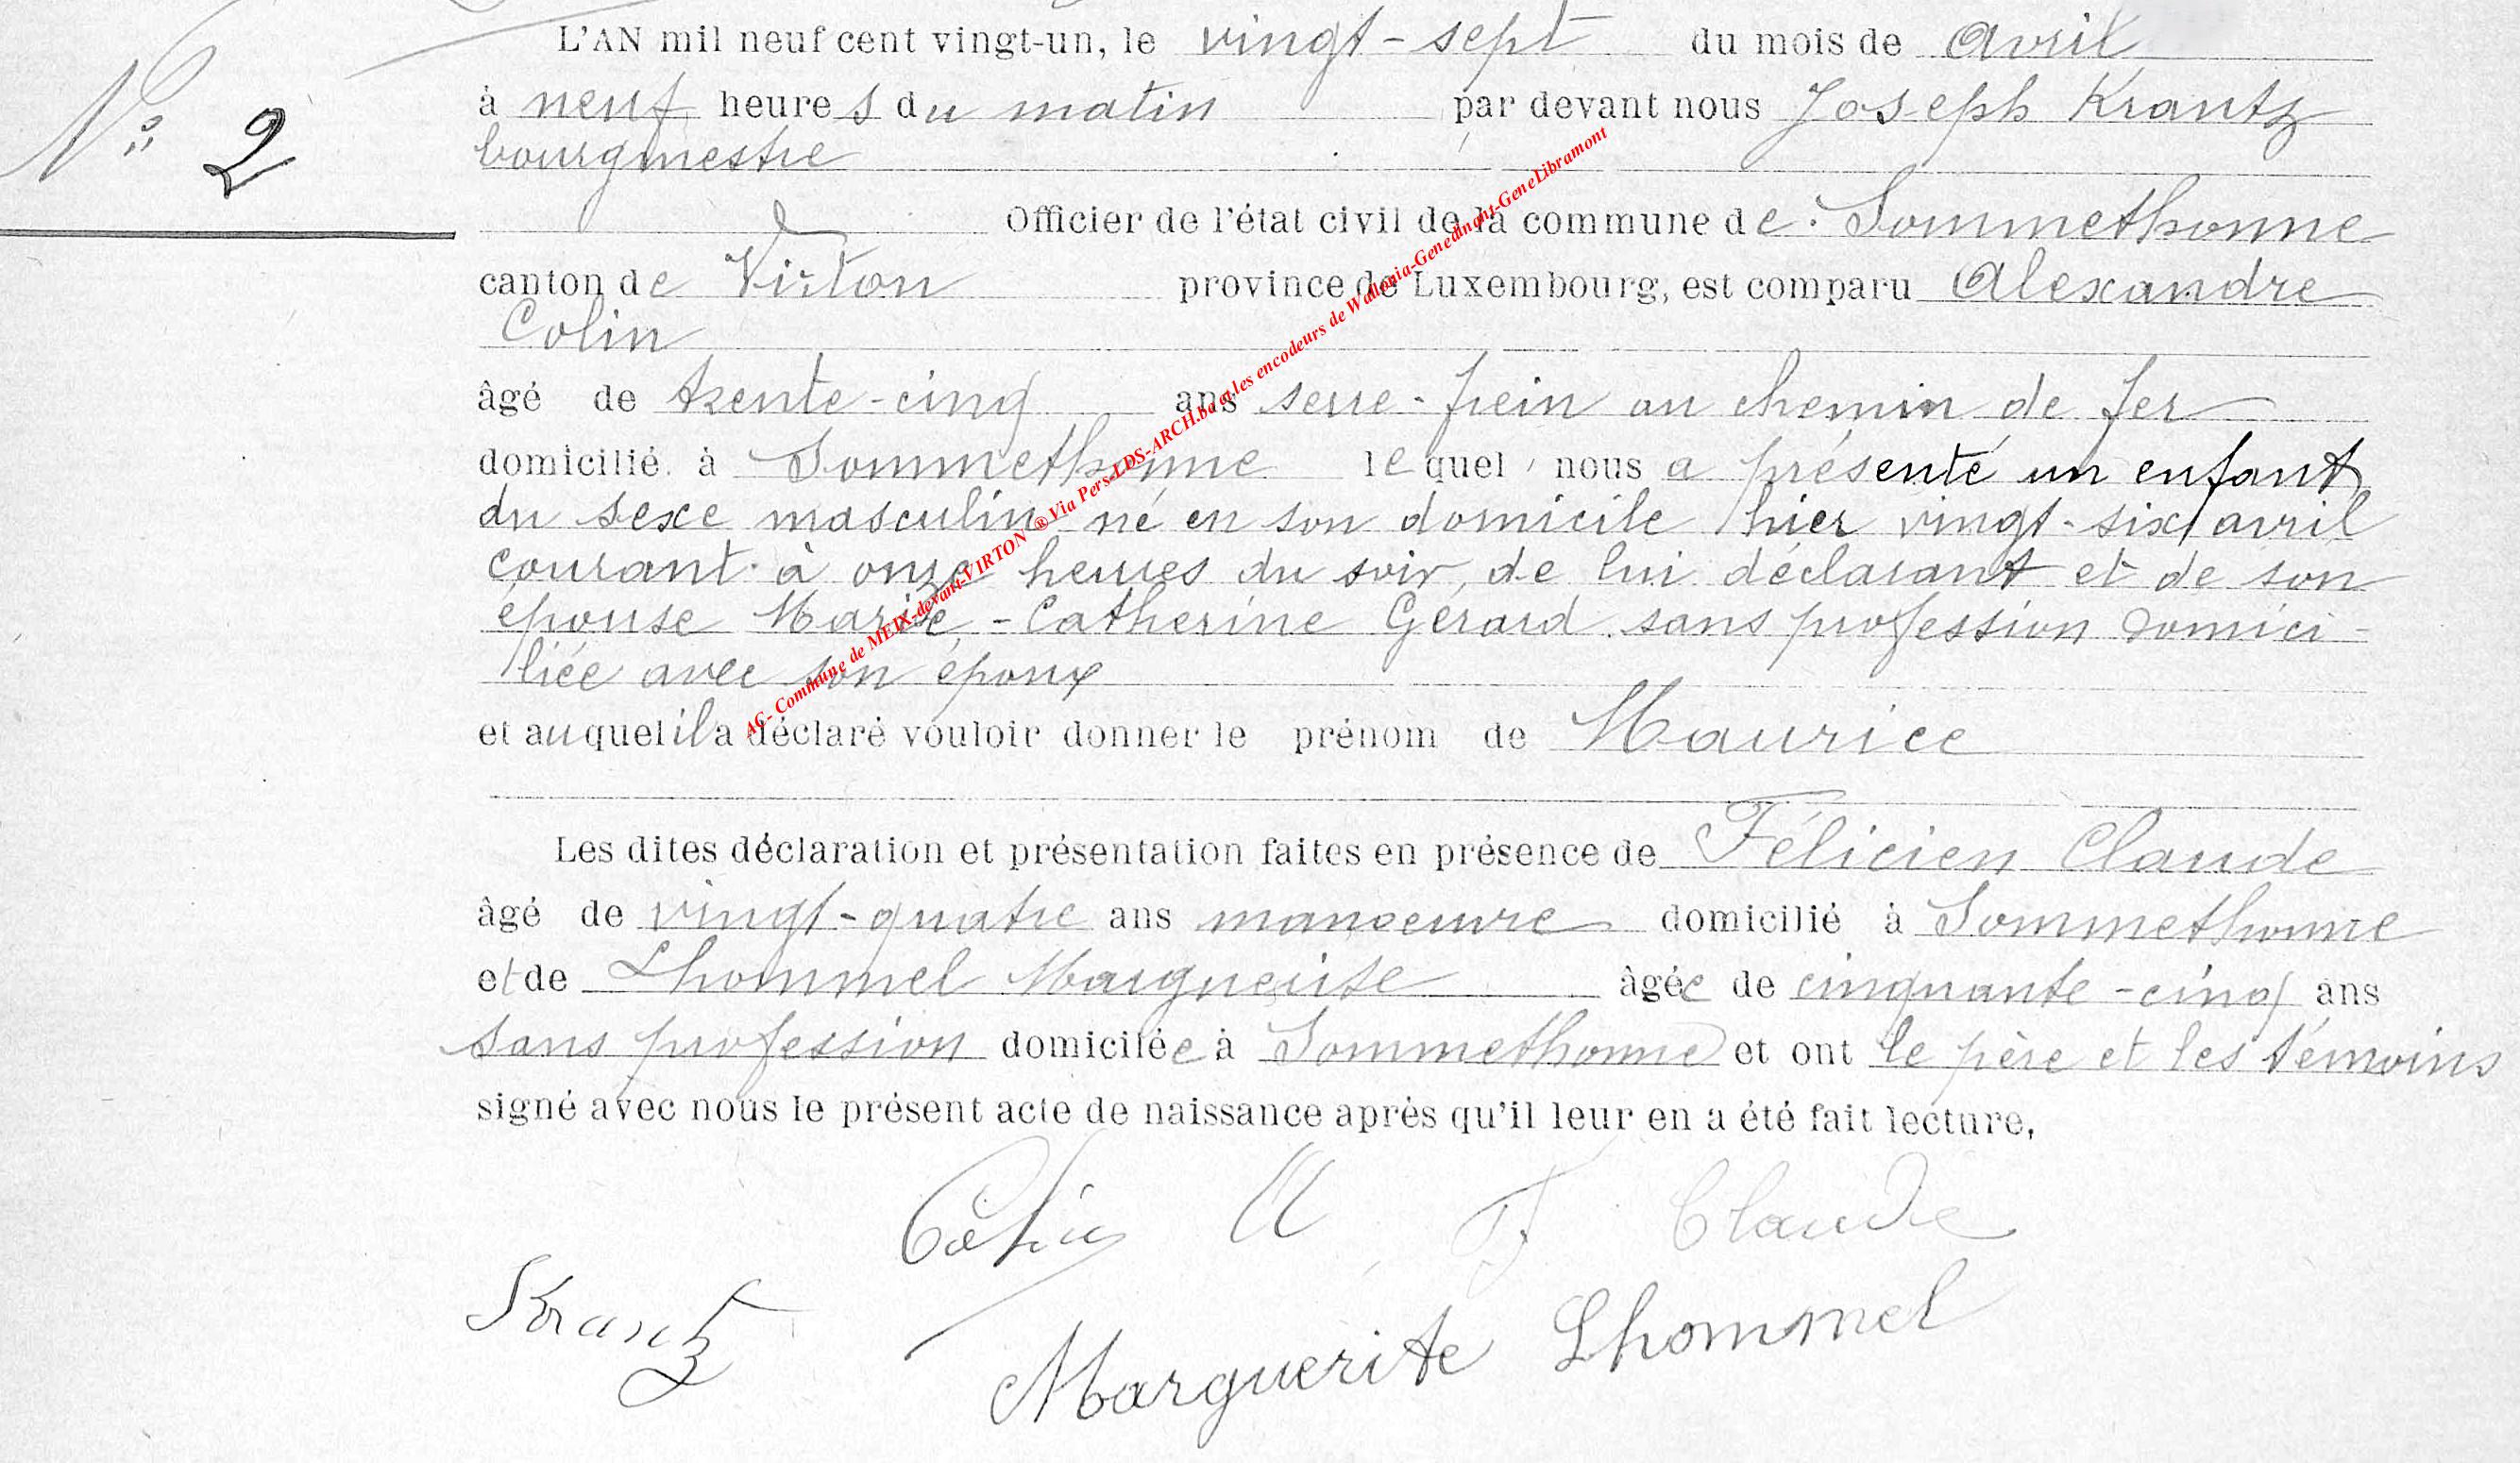 L'AN mil neuf cent vingt-un, le vingt-sept du mois de avril
N° 2
à neuf heures du matin par devant nous Joseph Krantz
bourgmestre
Officier de l'état civil de la commune de Sommethonne
canton de Virton province de Luxembourg, est comparu Alexandre
Colin
âgé de trente-cinq ans serre-frein au chemin de fer
domicilié à Sommethonne lequel nous a présenté un enfant
du sexe masculin né en son domicile hier vingt-six avril
courant à onze heures du soir, de lui déclarant et de son
épouse Marie-Catherine Gérard sans profession domici-
liée avec son époux
et auquel il a déclaré vouloir donner le prénom de Maurice
Les dites déclaration et présentation faites en présence de Félicien Claude
âgé de vingt-quatre ans manoeuvre domicilié à Sommethonne
et de Lhommel Marguerite âgée de cinquante-cinq ans
sans profession domicilée à Sommethonne et ont le père et les témoins
signé avec nous le présent acte de naissance après qu'il leur en a été fait lecture,
Colin A F Claude
Krantz
Marguerite Lhommel
AC- Commune de MEIX-devant-VIRTON ® Via Pers-LDS-ARCH.be et les encodeurs de Wallonia-Genedinant-GeneLibramont